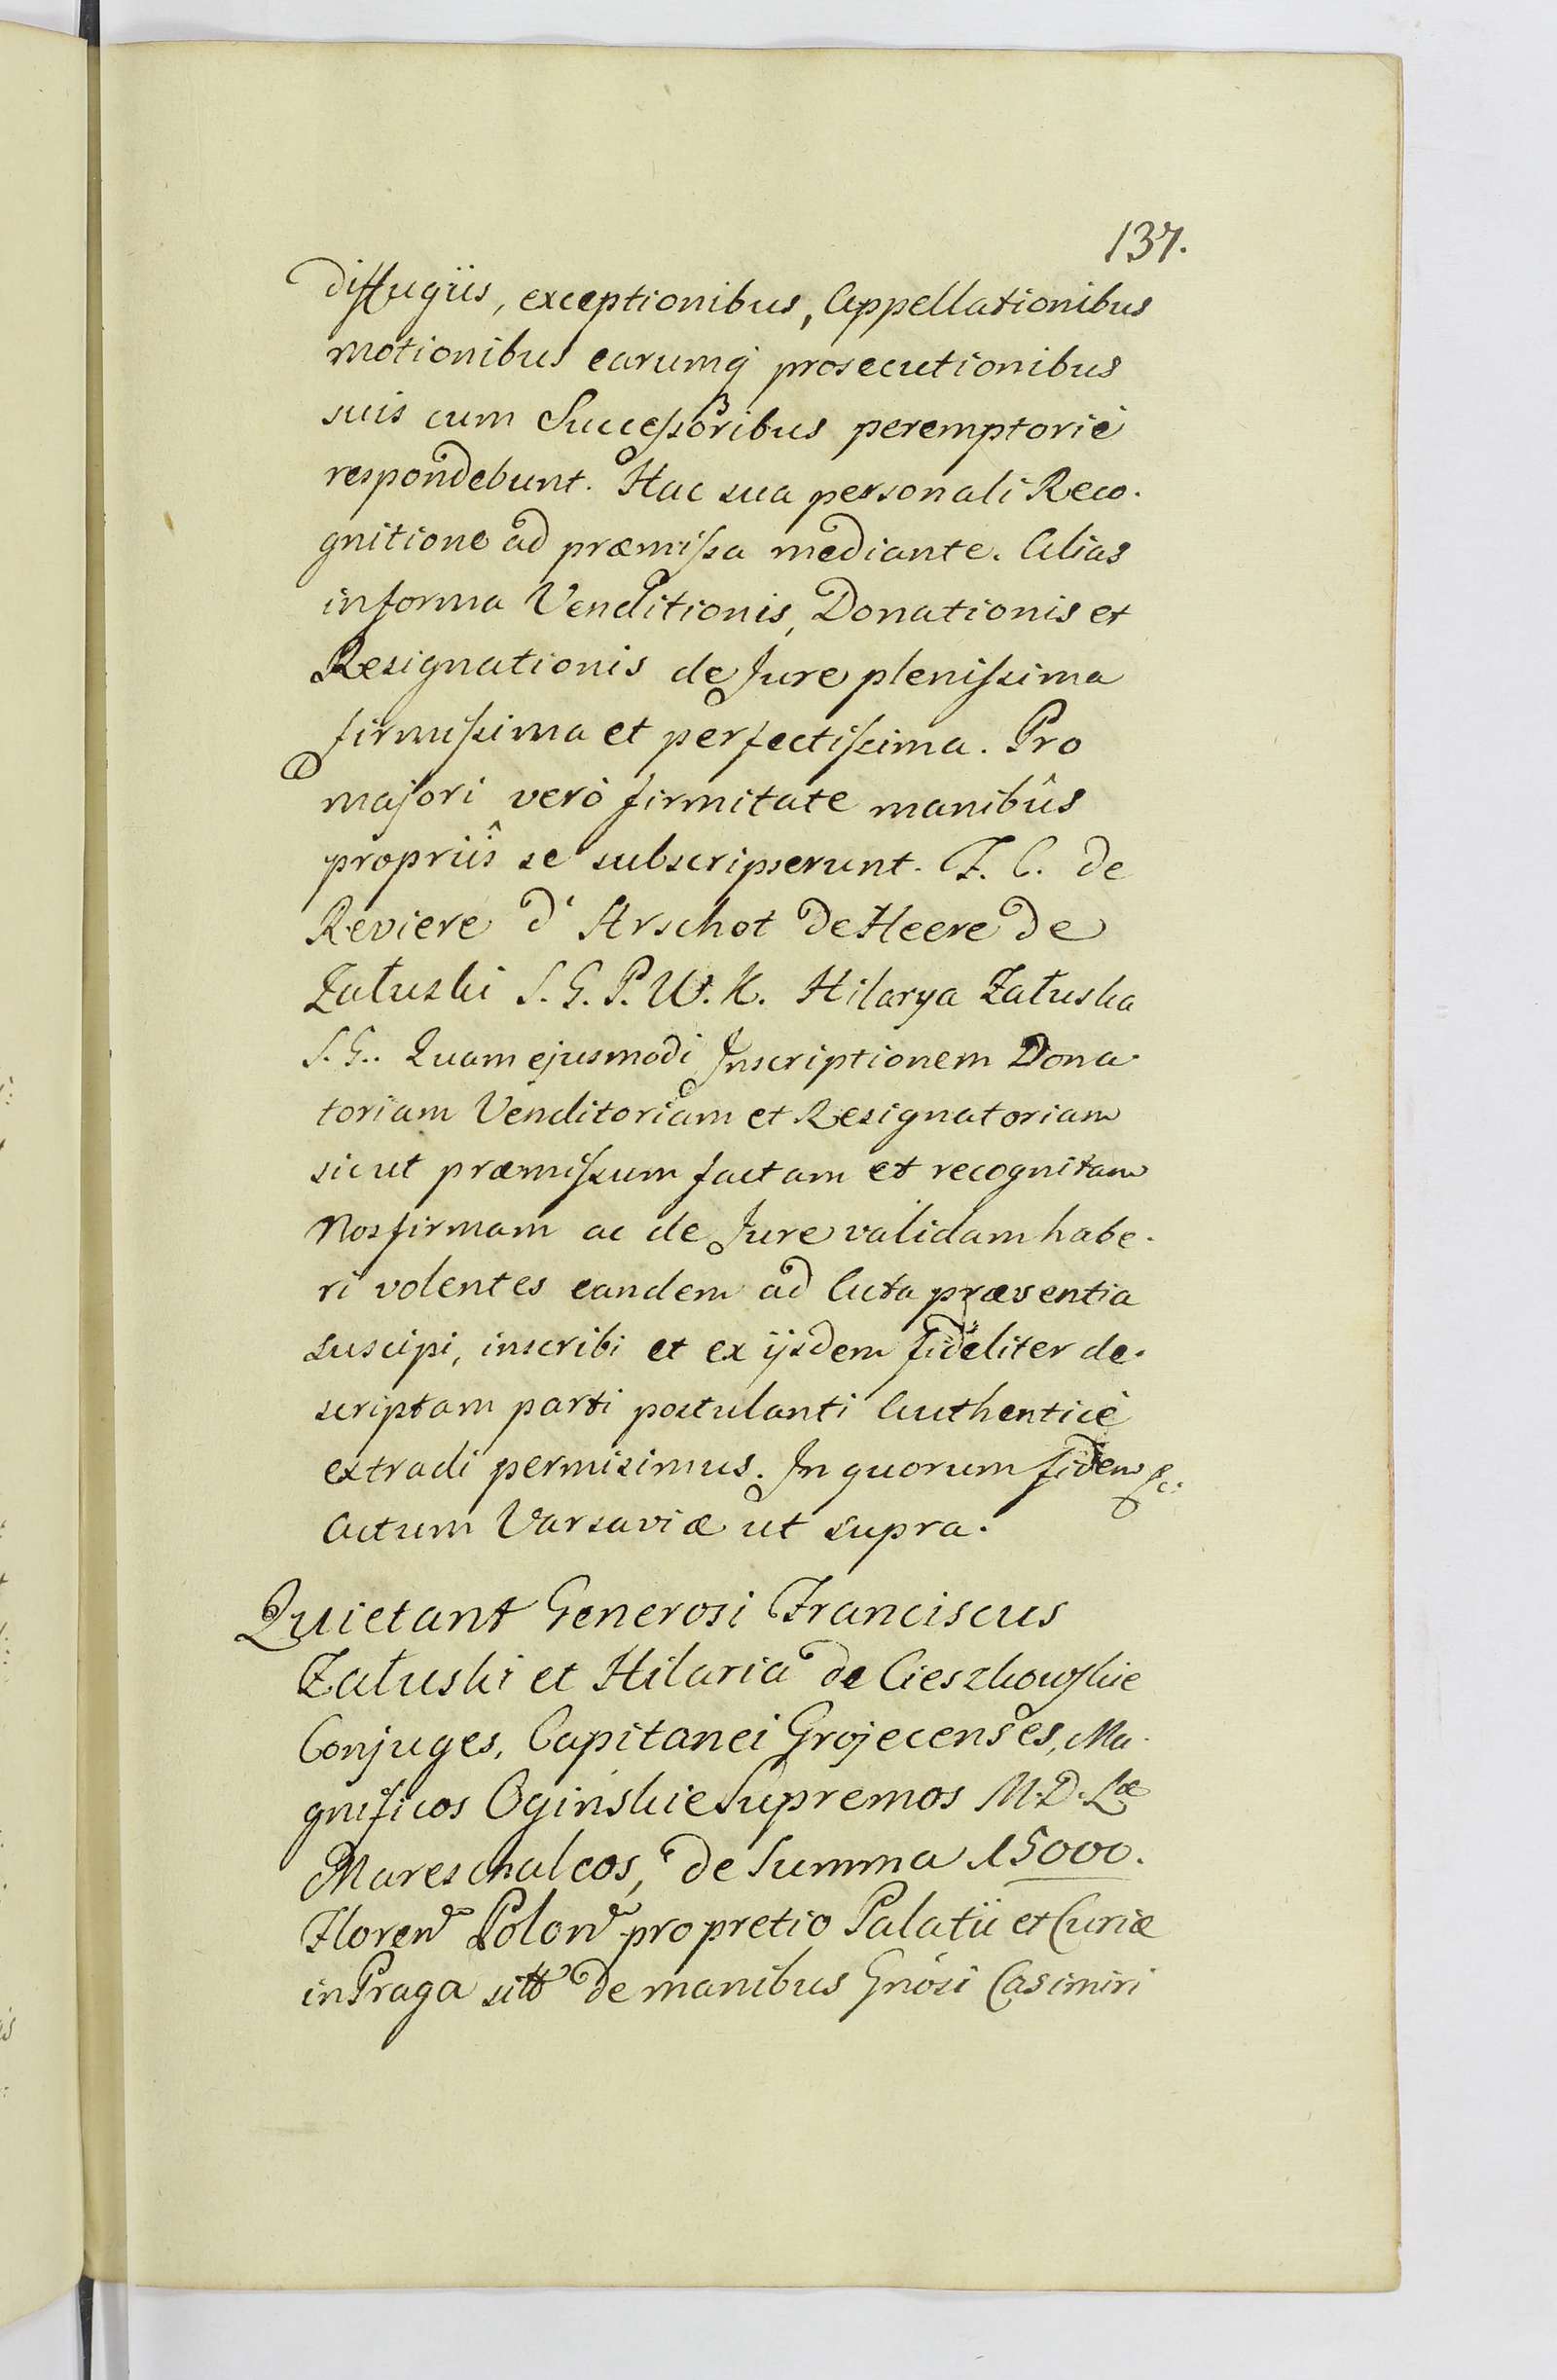 137.
diffugiis, exceptionibus, Appellationibus
motionibus earumq́ prosecutionibus
suis cum Successoribus peremptorié
respondebunt. Hac sua personali Reco-
gnitione ad præmissa mediante. Alias
in forma Venditionis, Donationis et
Resignationis de Jure plenissima
firmissima et perfectissima. Pro
majori veró firmitate manibûs
propriîs se subscripserunt. F. C. de
Reviere d' Arschot de Heere de
Załuski S. G. P. W. K. Hilarya Załuska
S. G.. Quam ejusmodi Inscriptionem Dona-
toriam Venditoriam et Resignatoriam
sicut præmissum factam et recognitam
Nos firmam ac de Jure validam habe-
ri volentes eandem ad Acta præsentia
suscipi, inscribi et ex ijsdem fideliter de-
scriptam parti postulanti Authenticé
extradi permisimus. In quorum fidem &c:
Actum Varsaviæ ut supra.
Quietant Generosi Franciscus
Załuski et Hilaria de Cieszkowskie
Conjuges, Capitanei Grojecenses, Ma-
gnificos Oginskie Supremos M. D. Læ
Mareschalcos, de Summa 15000.
Floren Polon pro pretio Palatii et Curiæ
in Praga sitt de manibus Gnósi Casimiri